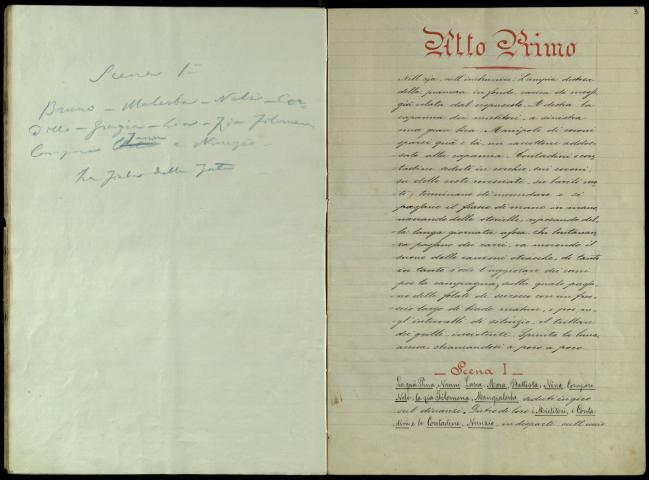 Scena 1ª
Bruno - Malerba - Neli - Car
Grazia - Lia - Zia Filomena
Compare Janni e Nunzio
La Figlia della
3
Atto Primo
Nell'aja, sull'imbrunire. L'ampia distesa
della pianura in fondo, carica di messi,
già velata dal crepuscolo. A destra la
capanna dei mietitori, a sinistra
una gran bica. Manipoli di covoni
sparsi qua e là, un carrettone addos-
sato alla capanna. Contadini e con-
tadine seduti in cerchio, sui covoni,
su delle ceste rovesciate, su barili vuo-
ti; terminano di merendare e si
passano il fiasco di mano in mano,
narrando delle storielle, riposando del-
la lunga giornata afosa. In lontanan-
za passano dei carri, va morendo il
suono delle canzoni stracche, di tanto
in tanto s'ode l'uggiolare dei cani
per la campagna, sulla quale passa-
no delle folate di scirocco con un fru-
scio largo di biade mature, e poi, ne-
gl'intervalli di silenzio, il trillare
dei grilli, insistente. Spunta la luna,
accesa, chiamandosi a poco a poco.
Scena I
La gnà Pina, Nanni Lasca, Mara, Battista, Nina, Compare
Neli, la zia Filomena, Mangialerba seduti in giro
sul dinanzi. Dietro di loro i Mietitori, i Conta-
dini e le Contadine, Nunzio, in disparte sull'uscio